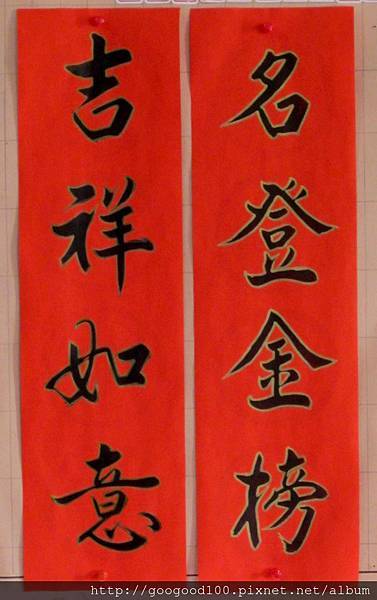 名登金榜
吉祥如意
http://googood100.pixnet.net/album